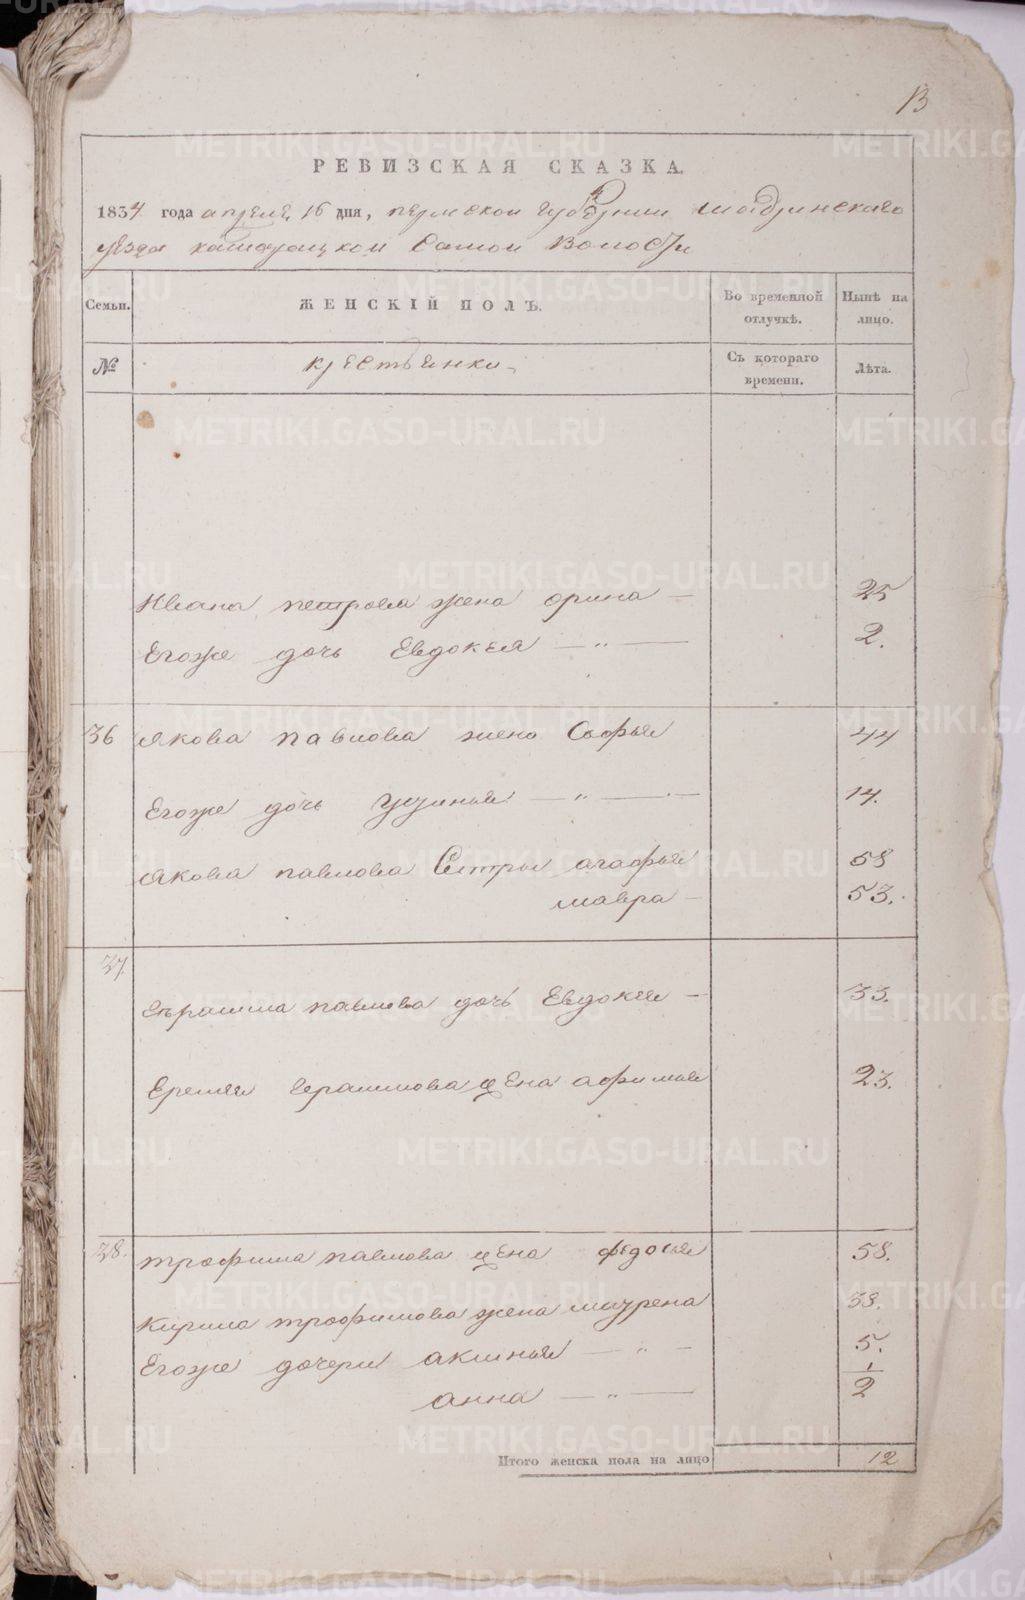 13
РЕВИЗСКАЯ СКАЗКА.
1834 года апреля 16 дня, пермской губернии шадринскаго
уезда катарацкой самой волости
Семьи. ЖЕНСКІЙ ПОЛЪ. Во временной отлучкѣ. Нынѣ на лицо.
№ крестьянки Съ котораго времени. Лѣта.
Ивана петрова жена орина 25
Егоже дочь Евдокея — „ — 2.
36 Якова павлова жена Софья 44
Егоже дочь — „ — 14.
Якова павлова Сестры агафья 58
мавра 53.
37. павлова дочь Евдокея 33.
Еремея герасимова жена афимья 23.
38. трофима павлова жена федосья 58.
Кирила трофимова жена 38.
Егоже дочери аксинья — „ — 5.
анна — „ — 1/2
Итого женска пола на лицо 12
METRIKI.GASO-URAL.RU